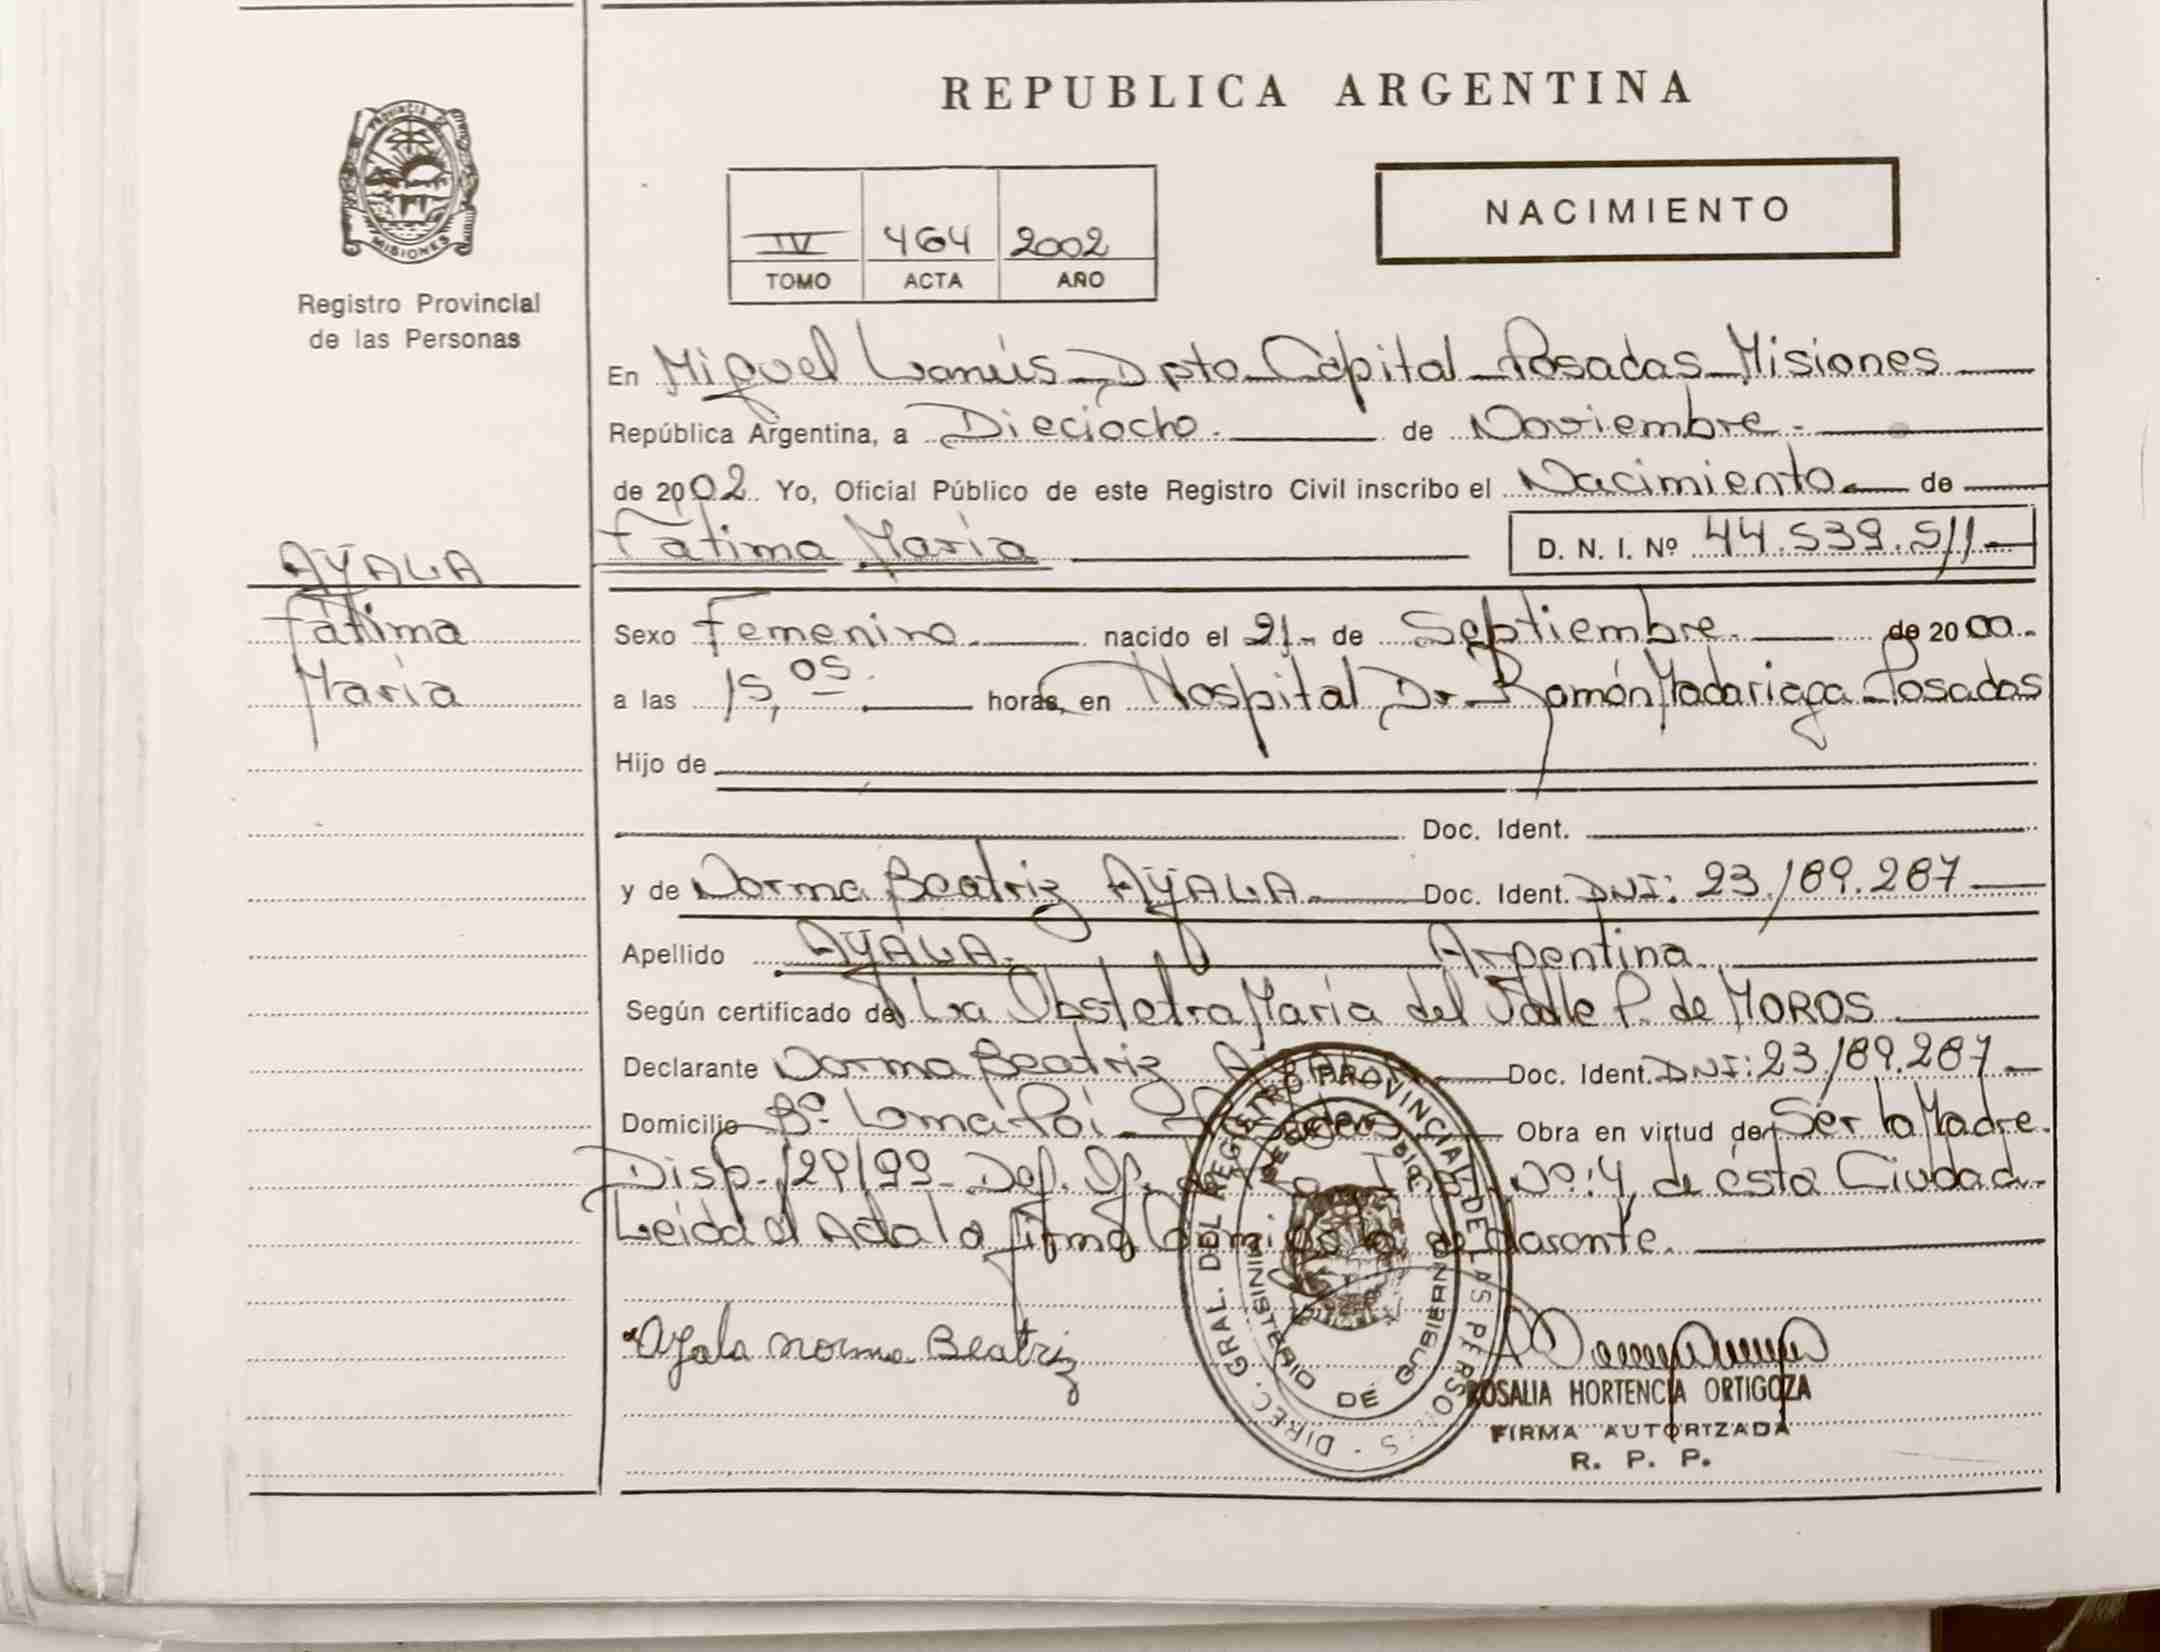 REPUBLICA ARGENTINA
PROVINCIA DE MISIONES
Registro Provincial
de las Personas
NACIMIENTO
IV 464 2002
TOMO ACTA AÑO
En Miguel Lanús Dpto Capital Posadas Misiones
República Argentina, a Dieciocho. de Noviembre.
de 2002. Yo, Oficial Público de este Registro Civil inscribo el Nacimiento de
Fátima María D. N. I. Nº 44.539.511
AYALA
Fátima
María
Sexo Femenino. nacido el 21 de Septiembre. de 2000.
a las 15,05. horas, en Hospital Dr. Ramón Madariaga Posadas
Hijo de
Doc. Ident.
y de Norma Beatriz AYALA Doc. Ident. DNI: 23.189.287
Apellido AYALA. Argentina
Según certificado de La Obstetra María del Valle P. de MOROS
Declarante Norma Beatriz Doc. Ident. DNI: 23.189.287
Domicilio Bº Loma Poi Obra en virtud de Ser la Madre.
Disp. 29/99 Def. Of. Nº: 4, de ésta Ciudad.
Leida el Acta la firma Conmigo la declarante.
Ayala Norma Beatriz
DIREC. GRAL. DEL REGISTRO PROVINCIAL DE LAS PERSONAS
MINISTERIO DE GOBIERNO
ROSALIA HORTENCIA ORTIGOZA
FIRMA AUTORIZADA
R. P. P.